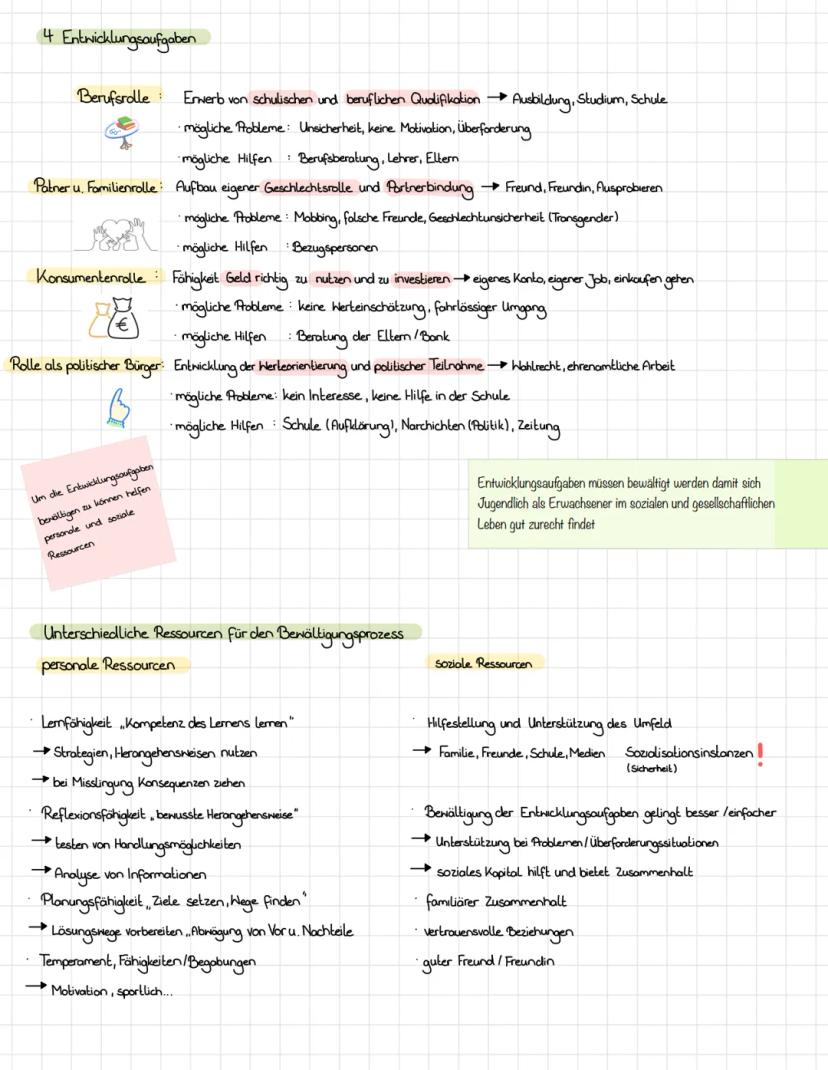 4 Entwicklungsaufgaben
Berufsrolle : Erwerb von schulischen und beruflichen Qualifikation → Ausbildung, Studium, Schule
· mögliche Probleme : Unsicherheit, keine Motivation, Überforderung
· mögliche Hilfen : Berufsberatung, Lehrer, Eltern
Patner u. Familienrolle : Aufbau eigener Geschlechtsrolle und Partnerbindung → Freund, Freundin, Ausprobieren
· mögliche Probleme : Mobbing, falsche Freunde, Geschlechtunsicherheit (Transgender)
· mögliche Hilfen : Bezugspersonen
Konsumentenrolle : Fähigkeit Geld richtig zu nutzen und zu investieren → eigenes Konto, eigener Job, einkaufen gehen
· mögliche Probleme : keine Werteinschätzung, fahrlässiger Umgang
€
· mögliche Hilfen : Beratung der Eltern / Bank
Rolle als politischer Bürger: Entwicklung der Werteorientierung und politischer Teilnahme → Wahlrecht, ehrenamtliche Arbeit
· mögliche Probleme: kein Interesse, keine Hilfe in der Schule
· mögliche Hilfen : Schule (Aufklärung), Narchichten (Politik), Zeitung
Um die Entwicklungsaufgaben
bewältigen zu können helfen
personale und soziale
Ressourcen
Entwicklungsaufgaben müssen bewältigt werden damit sich
Jugendlich als Erwachsener im sozialen und gesellschaftlichen
Leben gut zurecht findet
Unterschiedliche Ressourcen für den Bewältigungsprozess
personale Ressourcen
· Lernfähigkeit „Kompetenz des Lernens lernen"
→ Strategien, Herangehensweisen nutzen
→ bei Misslingung Konsequenzen ziehen
· Reflexionsfähigkeit „bewusste Herangehensweise"
→ testen von Handlungsmöglichkeiten
→ Analyse von Informationen
· Planungsfähigkeit „Ziele setzen, Wege finden"
→ Lösungswege vorbereiten „Abwägung von Vor u. Nachteile
· Temperament, Fähigkeiten/Begabungen
→ Motivation, sportlich...
soziale Ressourcen
· Hilfestellung und Unterstützung des Umfeld
→ Familie, Freunde, Schule, Medien Sozialisationsinstanzen !
(Sicherheit)
· Bewältigung der Entwicklungsaufgaben gelingt besser / einfacher
→ Unterstützung bei Problemen/Überforderungssituationen
→ soziales Kapital hilft und bietet Zusammenhalt
· familiärer Zusammenhalt
· vertrauensvolle Beziehungen
· guter Freund / Freundin